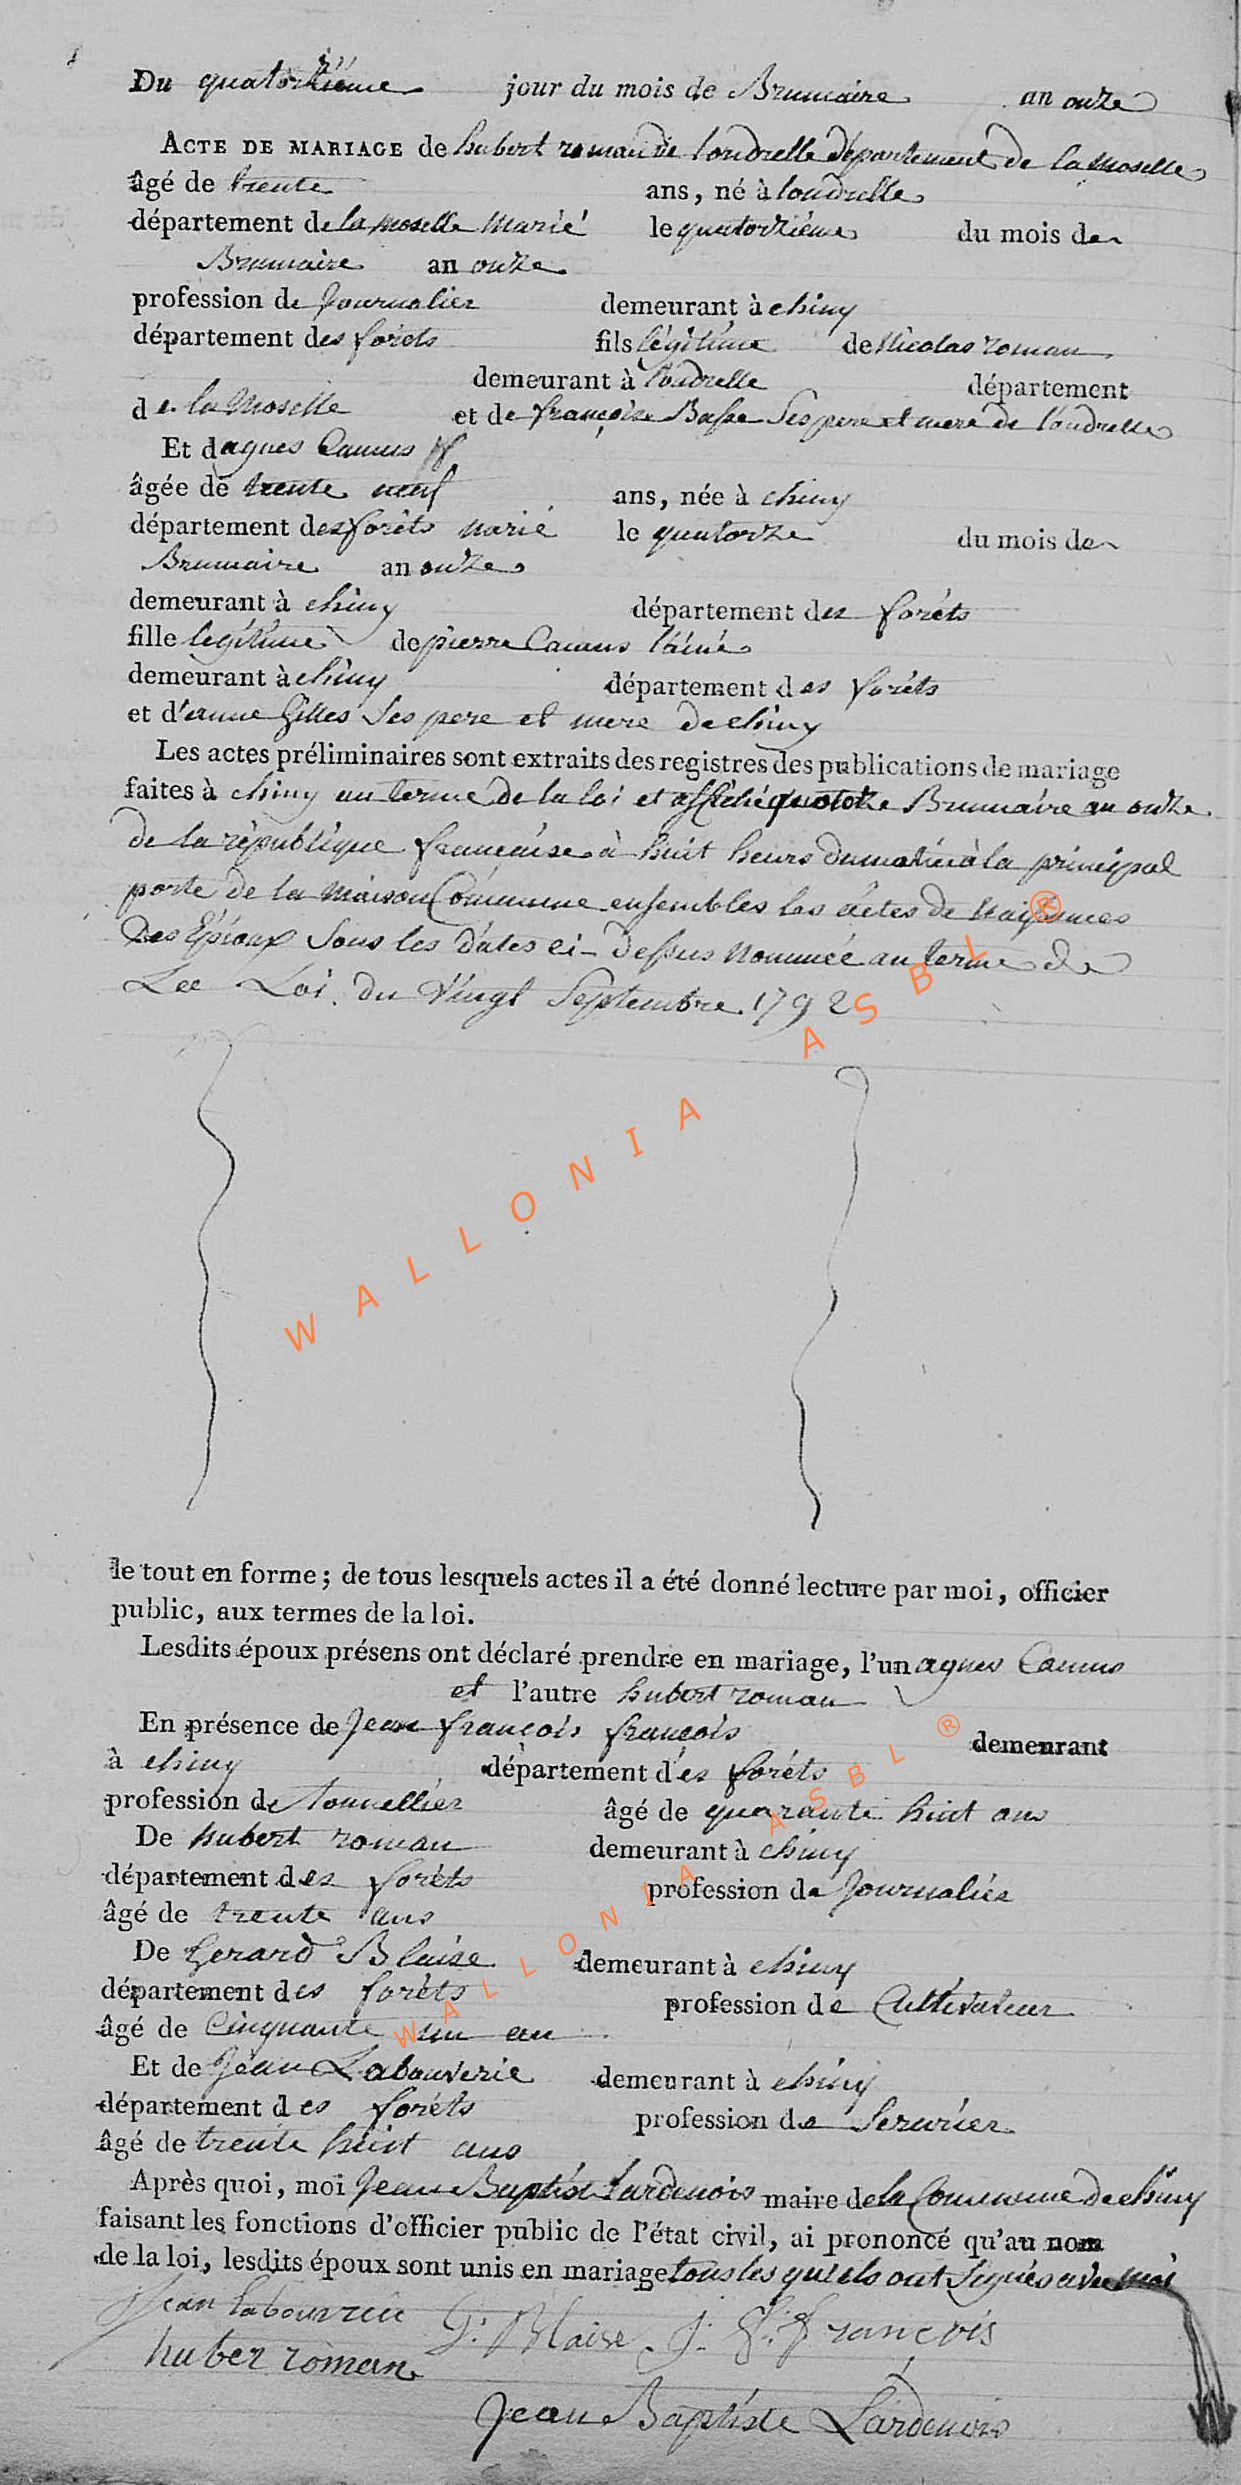 Du quatorzième jour du mois de Brumaire an onze
ACTE DE MARIAGE de hubert roman de londrelle département de la Moselle
âgé de trente ans, né à londrelle
département de la moselle Marié le quatorzième du mois de
Brumaire an onze
profession de Journalier demeurant à chiny
département des forêts fils légitime de Nicolas roman
demeurant à londrelle département
de la Moselle et de françoise Basse Ses pere et mere de londrelle
Et d agnes Camus
âgée de trente neuf ans, née à chiny
département des forêts marié le quatorze du mois de
Brumaire an onze
demeurant à chiny département des forêts
fille legitime de pierre Camus l'ainé
demeurant à chiny département des forêts
et d'anne Gilles Ses pere et mere de chiny
Les actes préliminaires sont extraits des registres des publications de mariage
faites à chiny au terme de la loi et affiché quatorze Brumaire an onze
de la république française à huit heurs du matin à la principal
porte de la Maison Commune ensembles les actes de Naissances
Des Epioux Sous les dates ci-dessus nommée au terme de
La Loi du Vingt Septembre 1792
WALLONIA ASBL ®
le tout en forme; de tous lesquels actes il a été donné lecture par moi, officier
public, aux termes de la loi.
Lesdits époux présens ont déclaré prendre en mariage, l'un agnes Camus
et l'autre hubert roman
En présence de Jean françois françois demeurant
à chiny département des forêts
profession de tonnellier âgé de quarante huit ans
De hubert roman demeurant à chiny
département des forêts profession de Journalier
âgé de trente ans
De Gerard Blaise demeurant à chiny
département des forêts profession de Cultivateur
âgé de Cinquante un an
Et de Jean Labouverie demeurant à chiny
département des forêts profession de Serurier
âgé de trente huit ans
WALLONIA ASBL ®
Après quoi, moi Jean Baptist Lardenois maire de la Commune de chiny
faisant les fonctions d'officier public de l'état civil, ai prononcé qu'au nom
de la loi, lesdits époux sont unis en mariage tous les quels ont Signés avec moi
Jean labouverie G: Blaise J: f: françois
huber roman
Jean Baptiste Lardenois